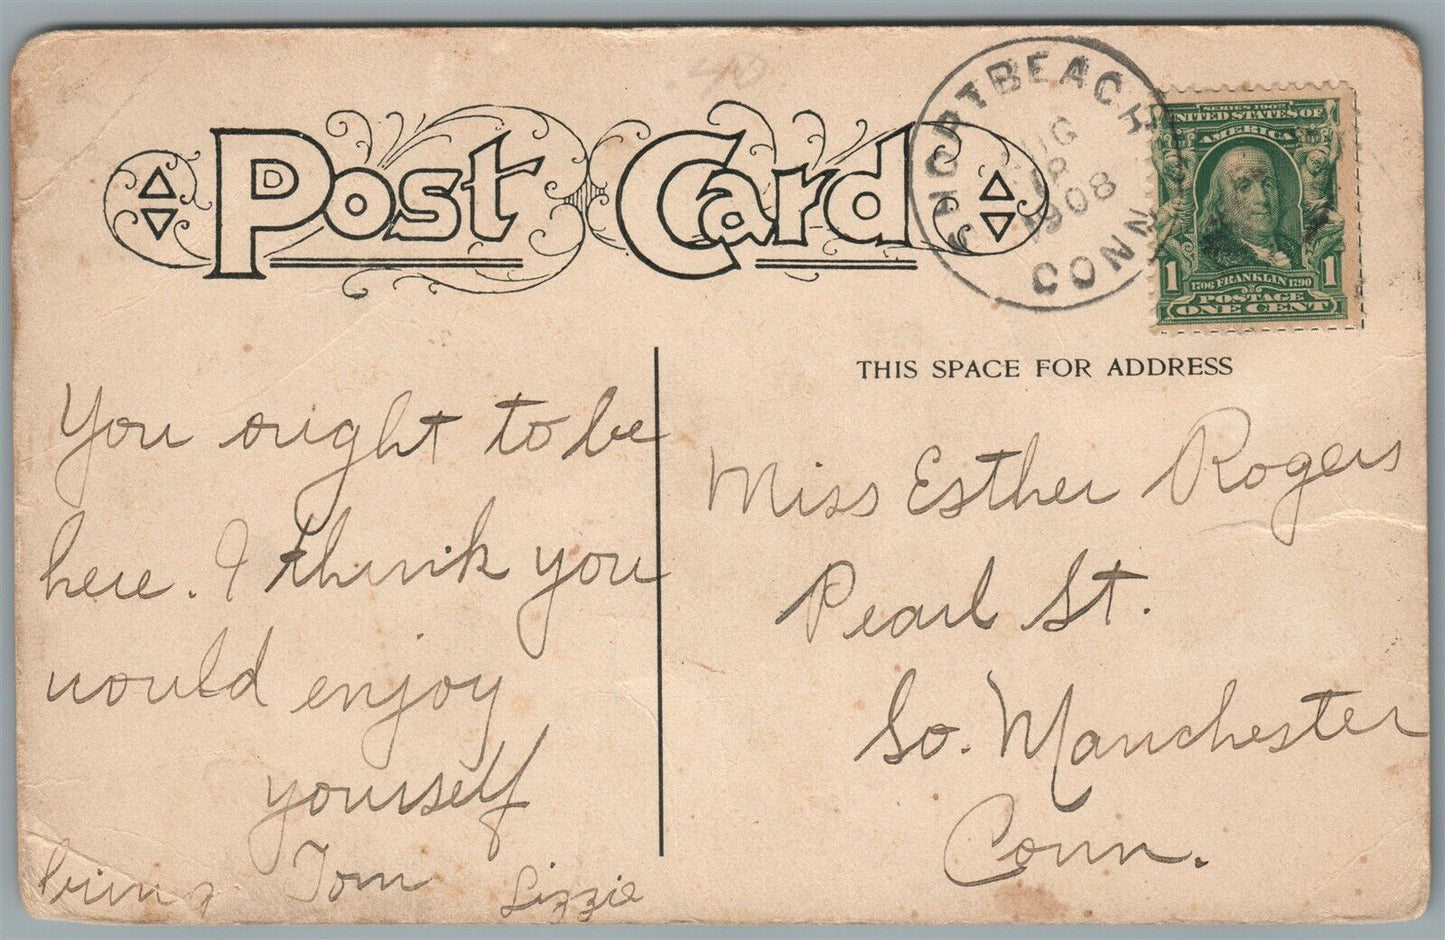 Post Card
SHORT BEACH
CONN.
1908
SERIES 1902
UNITED STATES OF
AMERICA
1 1
1706 FRANKLIN 1790
POSTAGE
ONE CENT
THIS SPACE FOR ADDRESS
You ought to be
here. I think you
would enjoy
yourself
bring Tom Lizzie
Miss Esther Rogers
Pearl St.
So. Manchester
Conn.